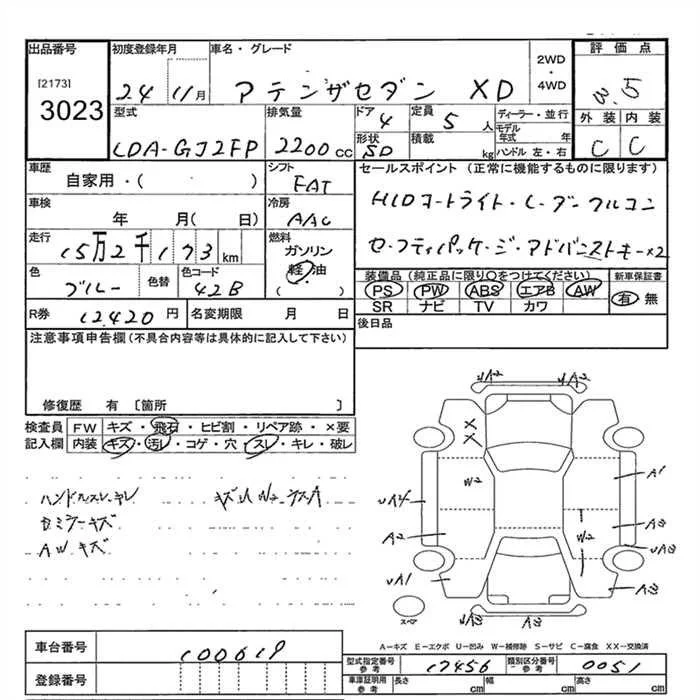 出品番号 初度登録年月 車名・グレード 2WD・4WD 評価点
[2173]
3023
24 11月 アテンザセダン XD 3.5
型式 排気量 ドア 4 定員 5人 ディーラー・並行 外装 内装
LDA-GJ2FP 2200cc 形状 SD 積載 kg モデル年式 年 ハンドル 左・右 C C
車歴 シフト セールスポイント (正常に機能するものに限ります)
自家用・( ) FAT
車検 冷房 HIDコートライト・レーダークルコン
年 月( 日) AAC
走行 燃料 セーフティパッケージ・アドバンストキー×2
15万2千173km ガソリン
軽・油
( ・ )
色 色替 色コード 装備品 (純正品に限り○をつけてください) 新車保証書
ブルー 42B PS PW ABS エアB AW 有 無
SR ナビ TV カワ
R券 12420円 名変期限 月 日 後日品
注意事項申告欄 (不具合内容等は具体的に記入して下さい)
修復歴 有 〔箇所 〕
検査員記入欄 FW キズ・飛石・ヒビ割・リペア跡・×要
内装 キズ・汚レ・コゲ・穴・スレ・キレ・破レ
ハンドルスレ・キレ
AW キズ
UA2 UA2
XX
W2
A1
UA4
A2
A3
W2
UA3
UA1
A3
UA2 A3
スペア
A-キズ E-エクボ U-凹み W-補修跡 S-サビ C-腐食 XX-交換済
車台番号 100619
型式指定番号 参考 17456 類別区分番号 参考 0051
登録番号
車庫証明用 参考 長さ cm 幅 cm 高さ cm